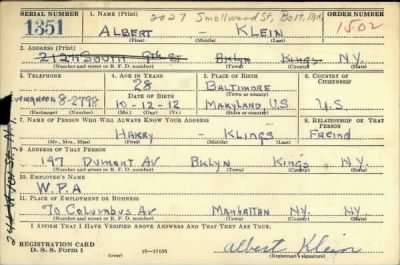 SERIAL NUMBER 1. NAME (Print) 2027 Smallwood St, Balt. Md. ORDER NUMBER
1351 ALBERT - KLEIN 1502
(First) (Middle) (Last)
2. ADDRESS (Print)
SOUTH 9th ST Bklyn Kings N.Y.
(Number and street or R. F. D. number) (Town) (County) (State)
3. TELEPHONE 4. AGE IN YEARS 5. PLACE OF BIRTH 6. COUNTRY OF CITIZENSHIP
28 BALTIMORE
DATE OF BIRTH (Town or county)
8-2798 10-12-12 MARYLAND, U.S U.S.
(Exchange) (Number) (Mo.) (Day) (Yr.) (State or country)
7. NAME OF PERSON WHO WILL ALWAYS KNOW YOUR ADDRESS 8. RELATIONSHIP OF THAT PERSON
HARRY - KLINGS FREIND
(Mr., Mrs., Miss) (First) (Middle) (Last)
9. ADDRESS OF THAT PERSON
147 DUMONT AV BKLYN KINGS N.Y.
(Number and street or R. F. D. number) (Town) (County) (State)
10. EMPLOYER'S NAME
W.P.A
11. PLACE OF EMPLOYMENT OR BUSINESS
70 COLUMBUS AV MANHATTAN N.Y. N.Y.
(Number and street or R. F. D. number) (Town) (County) (State)
I AFFIRM THAT I HAVE VERIFIED ABOVE ANSWERS AND THAT THEY ARE TRUE.
REGISTRATION CARD
D. S. S. Form 1 16-17105 Albert Klein
(Registrant's signature)